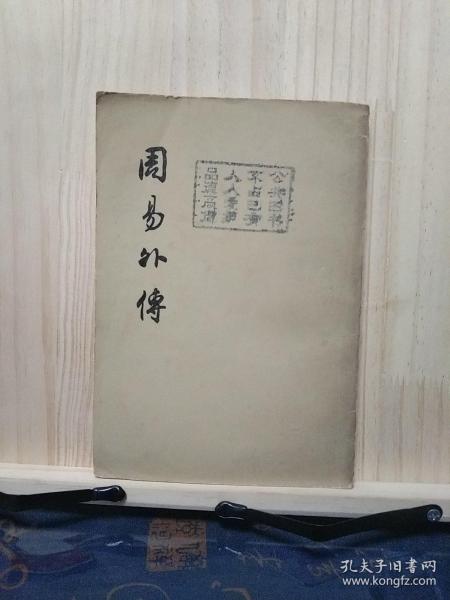 周易外傳
公共图书
不占己有
人人爱护
品德高尚
孔夫子旧书网
www.kongfz.com